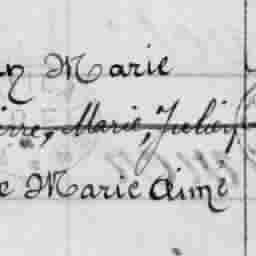 n Marie
ierre, Marie, Julien
e Marie Aimé